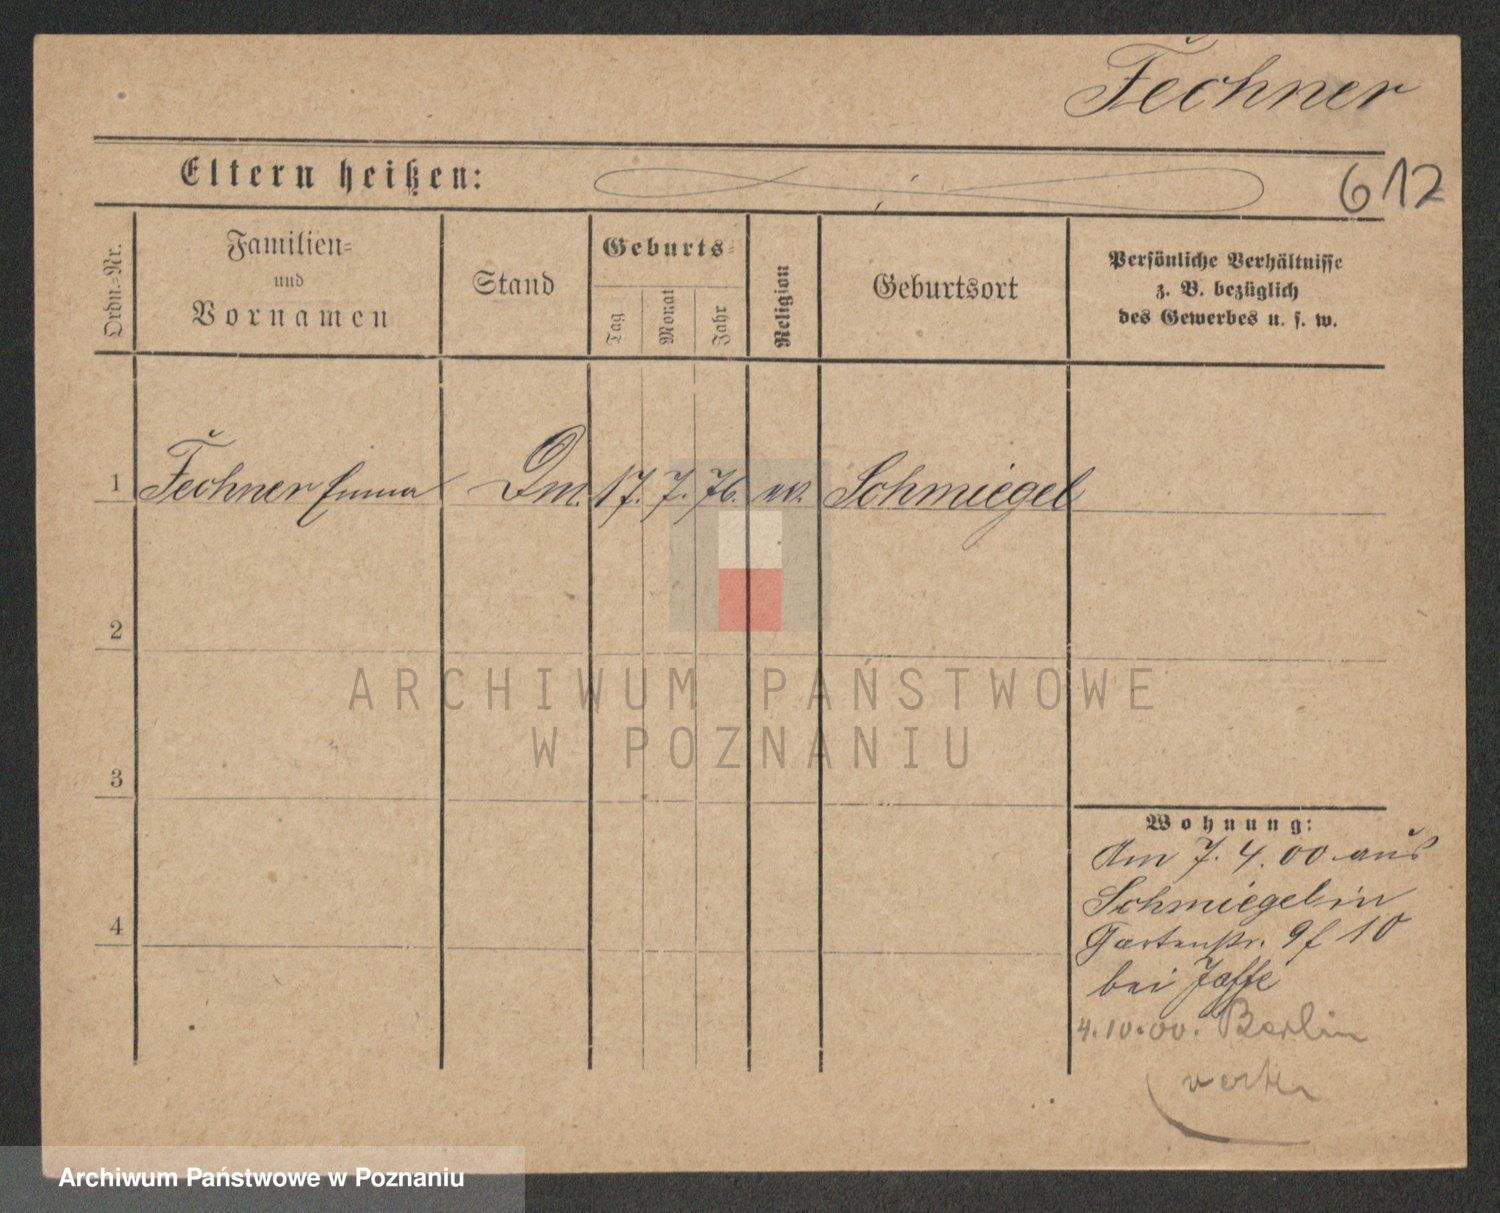 Fechner
Eltern heißen:
612
Ordn.-Nr.
Familien-
und
Vornamen
Stand
Geburts-
Tag
Monat
Jahr
Religion
Geburtsort
Persönliche Verhältnisse
z. B. bezüglich
des Gewerbes u. s. w.
1 Fechner Emma Dm. 17. 7. 76. ev. Schmiegel
2
3
4
Wohnung:
Am 7. 4. 00 aus
Schmiegel in
Gartenstr. 9 10
bei Jaffe
4.10.00. Berlin
ARCHIWUM PAŃSTWOWE
W POZNANIU
Archiwum Państwowe w Poznaniu